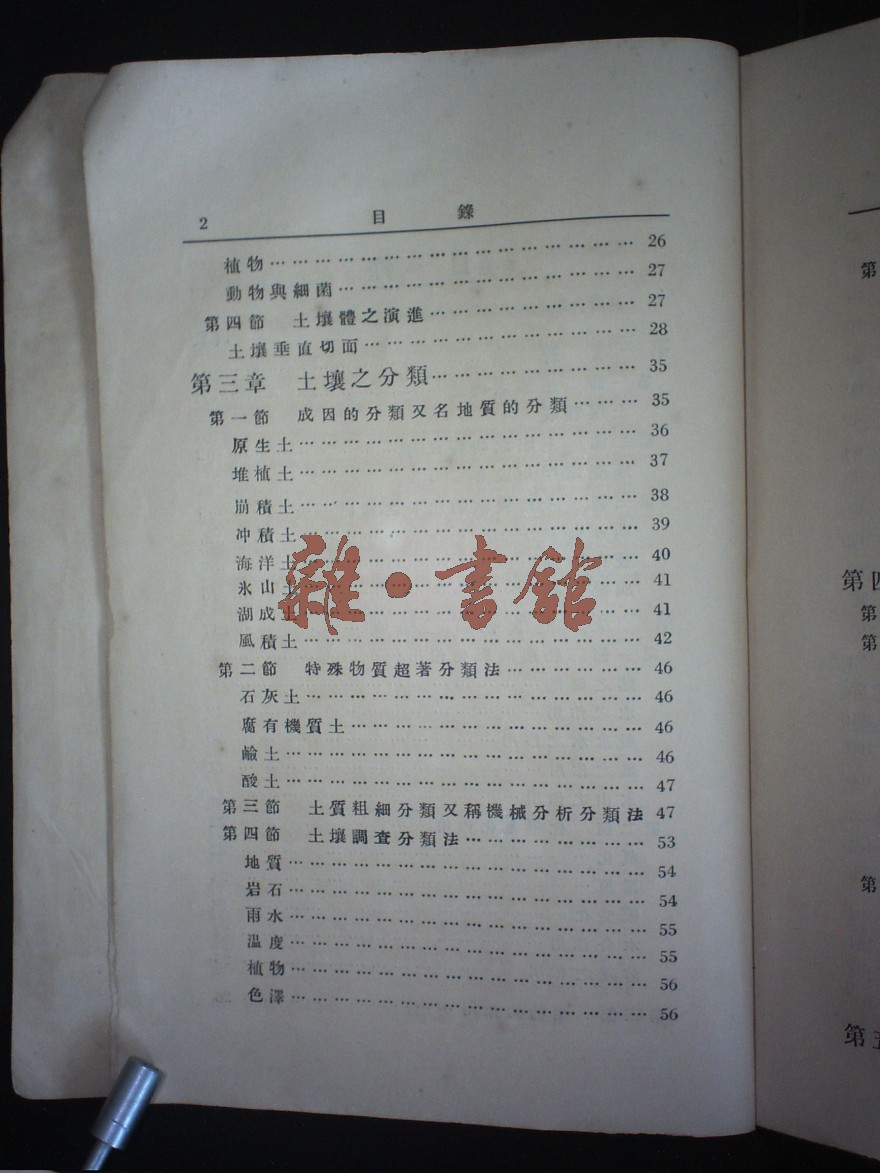 2 目錄
植物………………………………………… 26
動物與細菌………………………………… 27
第四節 土壤體之演進…………………… 27
土壤垂直切面……………………………… 28
第三章 土壤之分類……………………… 35
第一節 成因的分類又名地質的分類…… 35
原生土……………………………………… 36
堆植土……………………………………… 37
崩積土……………………………………… 38
冲積土……………………………………… 39
海洋土……………………………………… 40
氷山土……………………………………… 41
湖成土……………………………………… 41
風積土……………………………………… 42
第二節 特殊物質超著分類法…………… 46
石灰土……………………………………… 46
腐有機質土………………………………… 46
鹼土………………………………………… 46
酸土………………………………………… 47
第三節 土質粗細分類又稱機械分析分類法 47
第四節 土壤調查分類法………………… 53
地質………………………………………… 54
岩石………………………………………… 54
雨水………………………………………… 55
温度………………………………………… 55
植物………………………………………… 56
色澤………………………………………… 56
雜·書館
第
第四
第
第
第
第五